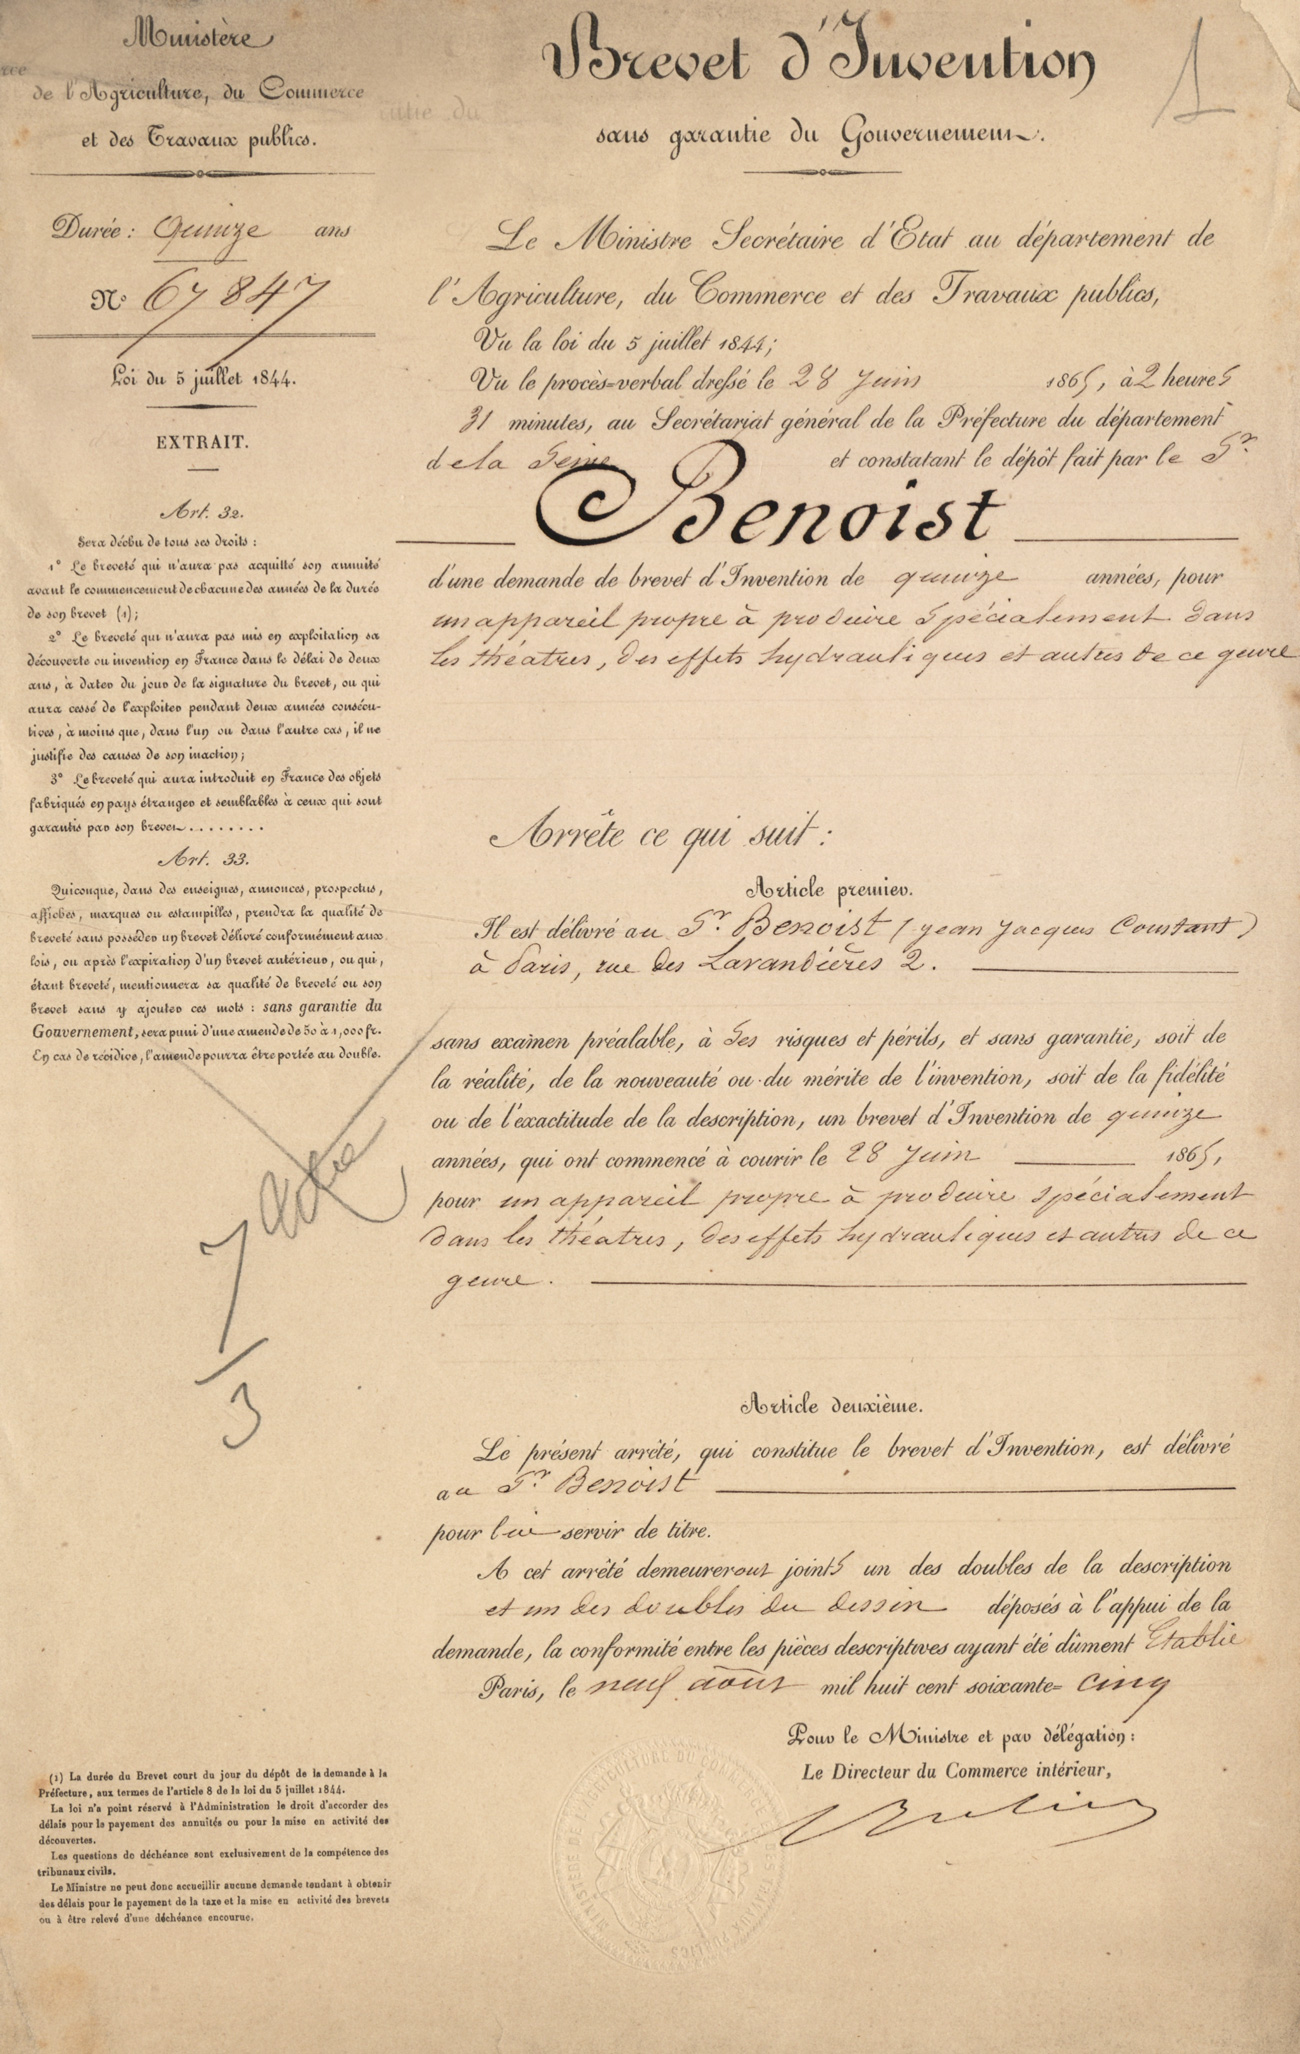 Ministère
de l'Agriculture, du Commerce
et des Travaux publics.
Durée: quinze ans
N° 67847
Loi du 5 juillet 1844.
EXTRAIT.
Art. 32.
Sera déchu de tous ses droits :
1° Le breveté qui n'aura pas acquitté son annuité
avant le commencement de chacune des années de la durée
de son brevet (1);
2° Le breveté qui n'aura pas mis en exploitation sa
découverte ou invention en France dans le délai de deux
ans, à dater du jour de la signature du brevet, ou qui
aura cessé de l'exploiter pendant deux années consécu-
tives, à moins que, dans l'un ou dans l'autre cas, il ne
justifie des causes de son inaction;
3° Le breveté qui aura introduit en France des objets
fabriqués en pays étranger et semblables à ceux qui sont
garantis par son brevet........
Art. 33.
Quiconque, dans des enseignes, annonces, prospectus,
affiches, marques ou estampilles, prendra la qualité de
breveté sans posséder un brevet délivré conformément aux
lois, ou après l'expiration d'un brevet antérieur, ou qui,
étant breveté, mentionnera sa qualité de breveté ou son
brevet sans y ajouter ces mots : sans garantie du
Gouvernement, sera puni d'une amende de 50 à 1,000 fr.
En cas de récidive, l'amende pourra être portée au double.
7
3
(1) La durée du Brevet court du jour du dépôt de la demande à la
Préfecture, aux termes de l'article 8 de la loi du 5 juillet 1844.
La loi n'a point réservé à l'Administration le droit d'accorder des
délais pour le payement des annuités ou pour la mise en activité des
découvertes.
Les questions de déchéance sont exclusivement de la compétence des
tribunaux civils.
Le Ministre ne peut donc accueillir aucune demande tendant à obtenir
des délais pour le payement de la taxe et la mise en activité des brevets
ou à être relevé d'une déchéance encourue.
Brevet d'Invention
1
sans garantie du Gouvernement.
Le Ministre Secrétaire d'Etat au département de
l'Agriculture, du Commerce et des Travaux publics,
Vu la loi du 5 juillet 1844;
Vu le procès=verbal dressé le 28 Juin 1865, à 2 heures
31 minutes, au Secrétariat général de la Préfecture du département
de la Seine et constatant le dépôt fait par le Sr.
Benoist
d'une demande de brevet d'Invention de quinze années, pour
un appareil propre à produire spécialement dans
les théatres, des effets hydrauliques et autres de ce genre
Arrête ce qui suit :
Article premier.
Il est délivré au Sr. Benoist (Jean Jacques Constant)
à Paris, rue des Lavandières 2.
sans examen préalable, à ses risques et périls, et sans garantie, soit de
la réalité, de la nouveauté ou du mérite de l'invention, soit de la fidélité
ou de l'exactitude de la description, un brevet d'Invention de quinze
années, qui ont commencé à courir le 28 Juin 1865,
pour un appareil propre à produire spécialement
dans les théatres, des effets hydrauliques et autres de ce
genre.
Article deuxième.
Le présent arrêté, qui constitue le brevet d'Invention, est délivré
au Sr. Benoist
pour lui servir de titre.
A cet arrêté demeureront joints un des doubles de la description
et un des doubles du dessin déposés à l'appui de la
demande, la conformité entre les pièces descriptives ayant été dûment Etablie
Paris, le neuf août mil huit cent soixante= cinq
Pour le Ministre et par délégation :
Le Directeur du Commerce intérieur,